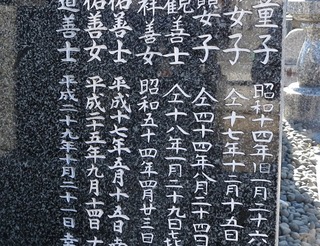 童子 昭和十四年旧八月二十六
女子 仝十七年十二月十五日
嬰子 仝四十四年八月二十四日
観善士 仝十八年一月二十九日
祥善女 昭和五十四年四月廿三日
祐善士 平成十七年五月十五日 幸
祐善女 平成二十五年九月十四日
道善士 平成二十九年十月二十二日 幸